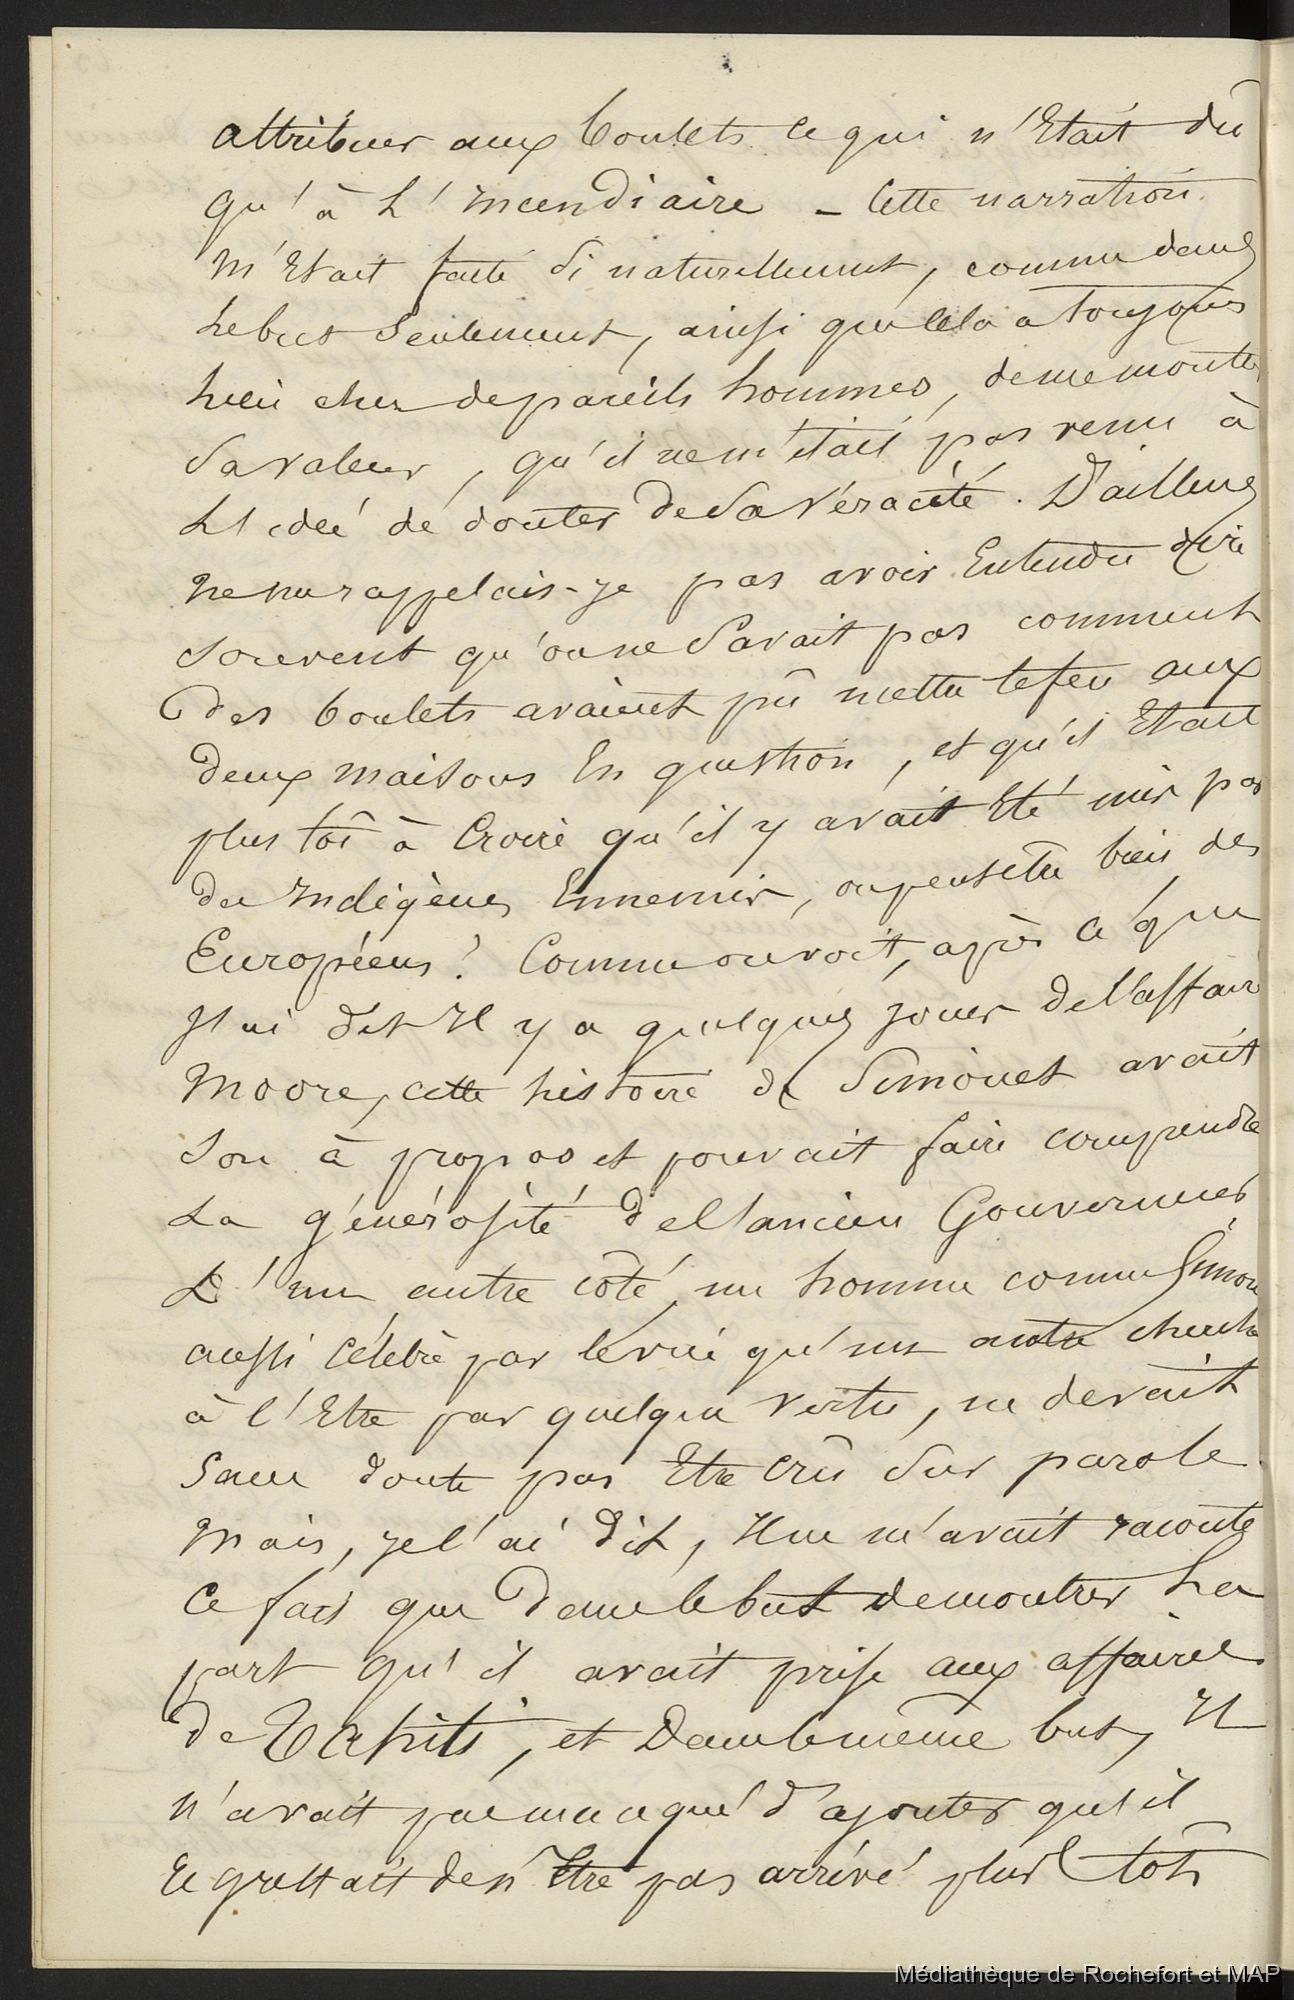 attribuer aux boulets ce qui n'Etait dû
qu'à L'Incendiaire – Cette narration
m'Etait faite si naturellement, comme dans
Le but Seulement, ainsi que cela a toujours
Lieu chez de pareils hommes, de me montrer
Sa valeur, qu'il ne m'était pas venu à
L'idée de douter de Sa Véracité. D'ailleurs
ne me rappelais-je pas avoir Entendu dire
Souvent qu'on ne Savait pas comment
des boulets avaient pû mettre le feu aux
deux maisons En question, et qu'il Etait
plus tôt à Croire qu'il y avait Eté mis par
des Indigènes Ennemis, ou peut être bien des
Européens? Comme on voit, après ce que
J'ai dit Il y a quelques jours de l'affaire
Moore, cette histoire de Simonet avait
Son à propos et pouvait faire comprendre
La générosité de l'ancien Gouverneur
D'un autre côté, un homme comme Simonet
aussi célèbre par le vice qu'un autre cherche
à l'Etre par quelque vertu, ne devait
Sans doute pas Etre crû Sur parole.
Mais, je l'ai dit, Il ne m'avait raconté
Ce fait que dans le but de montrer La
part qu'il avait prise aux affaires
de Tahiti, et Dans le même but, Il
n'avait pas manqué d'ajouter qu'il
regrettait de n'Etre pas arrivé plus tôt,
Médiathèque de Rochefort et MAP